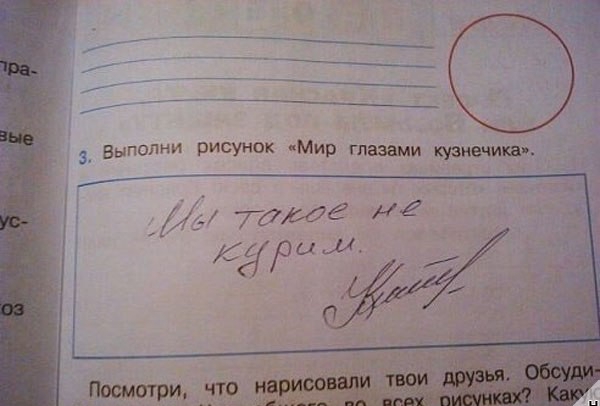 пра-
вые
ус-
оз
3. Выполни рисунок «Мир глазами кузнечика».
Мы такое не
курим.
Посмотри, что нарисовали твои друзья. Обсуди-
во всех рисунках? Какую